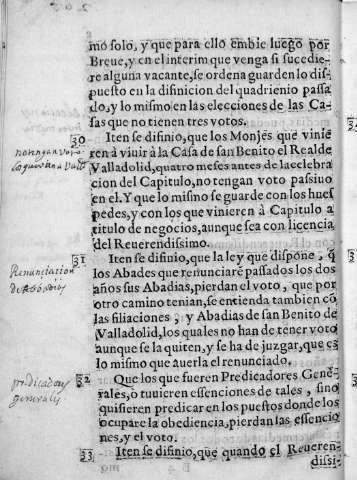 mo solo, y que para ello embie luego por
Breue, y en el interim que venga si sucedie-
re alguna vacante, se ordena guarden lo dis-
puesto en la difinicion del quadrienio passa
do, y lo mismo en las elecciones de las Ca-
sas que no tienen tres votos.
30 Iten se difinio, que los Monjes que vinie
ren à viuir à la Casa de san Benito el Real de
Valladolid, quatro meses antes de la celebra
cion del Capitulo, no tengan voto passiuo
en el. Y que lo mismo se guarde con los hues
pedes, y con los que vinieren à Capitulo a
titulo de negocios, aunque sea con licencia
del Reuerendissimo.
31 Iten se difinio, que la ley que dispone, q̃
los Abades que renunciarẽ passados los dos
años sus Abadias, pierdan el voto, que por
otro camino tenian, se entienda tambien cõ
las filiaciones, y Abadias de san Benito de
Valladolid, los quales no han de tener voto
aunque se la quiten, y se ha de juzgar, que es
lo mismo que auerla el renunciado.
32 Que los que fueren Predicadores Gene-
rales, o tuuieren essenciones de tales, sino
quisieren predicar en los puestos donde los
ocupare la obediencia, pierdan las essencio
nes, y el voto.
33 Iten se difinio, que quando el Reueren-
dissi-
no tengan voto
Renunciation
de Abbadias
predicadores
generales